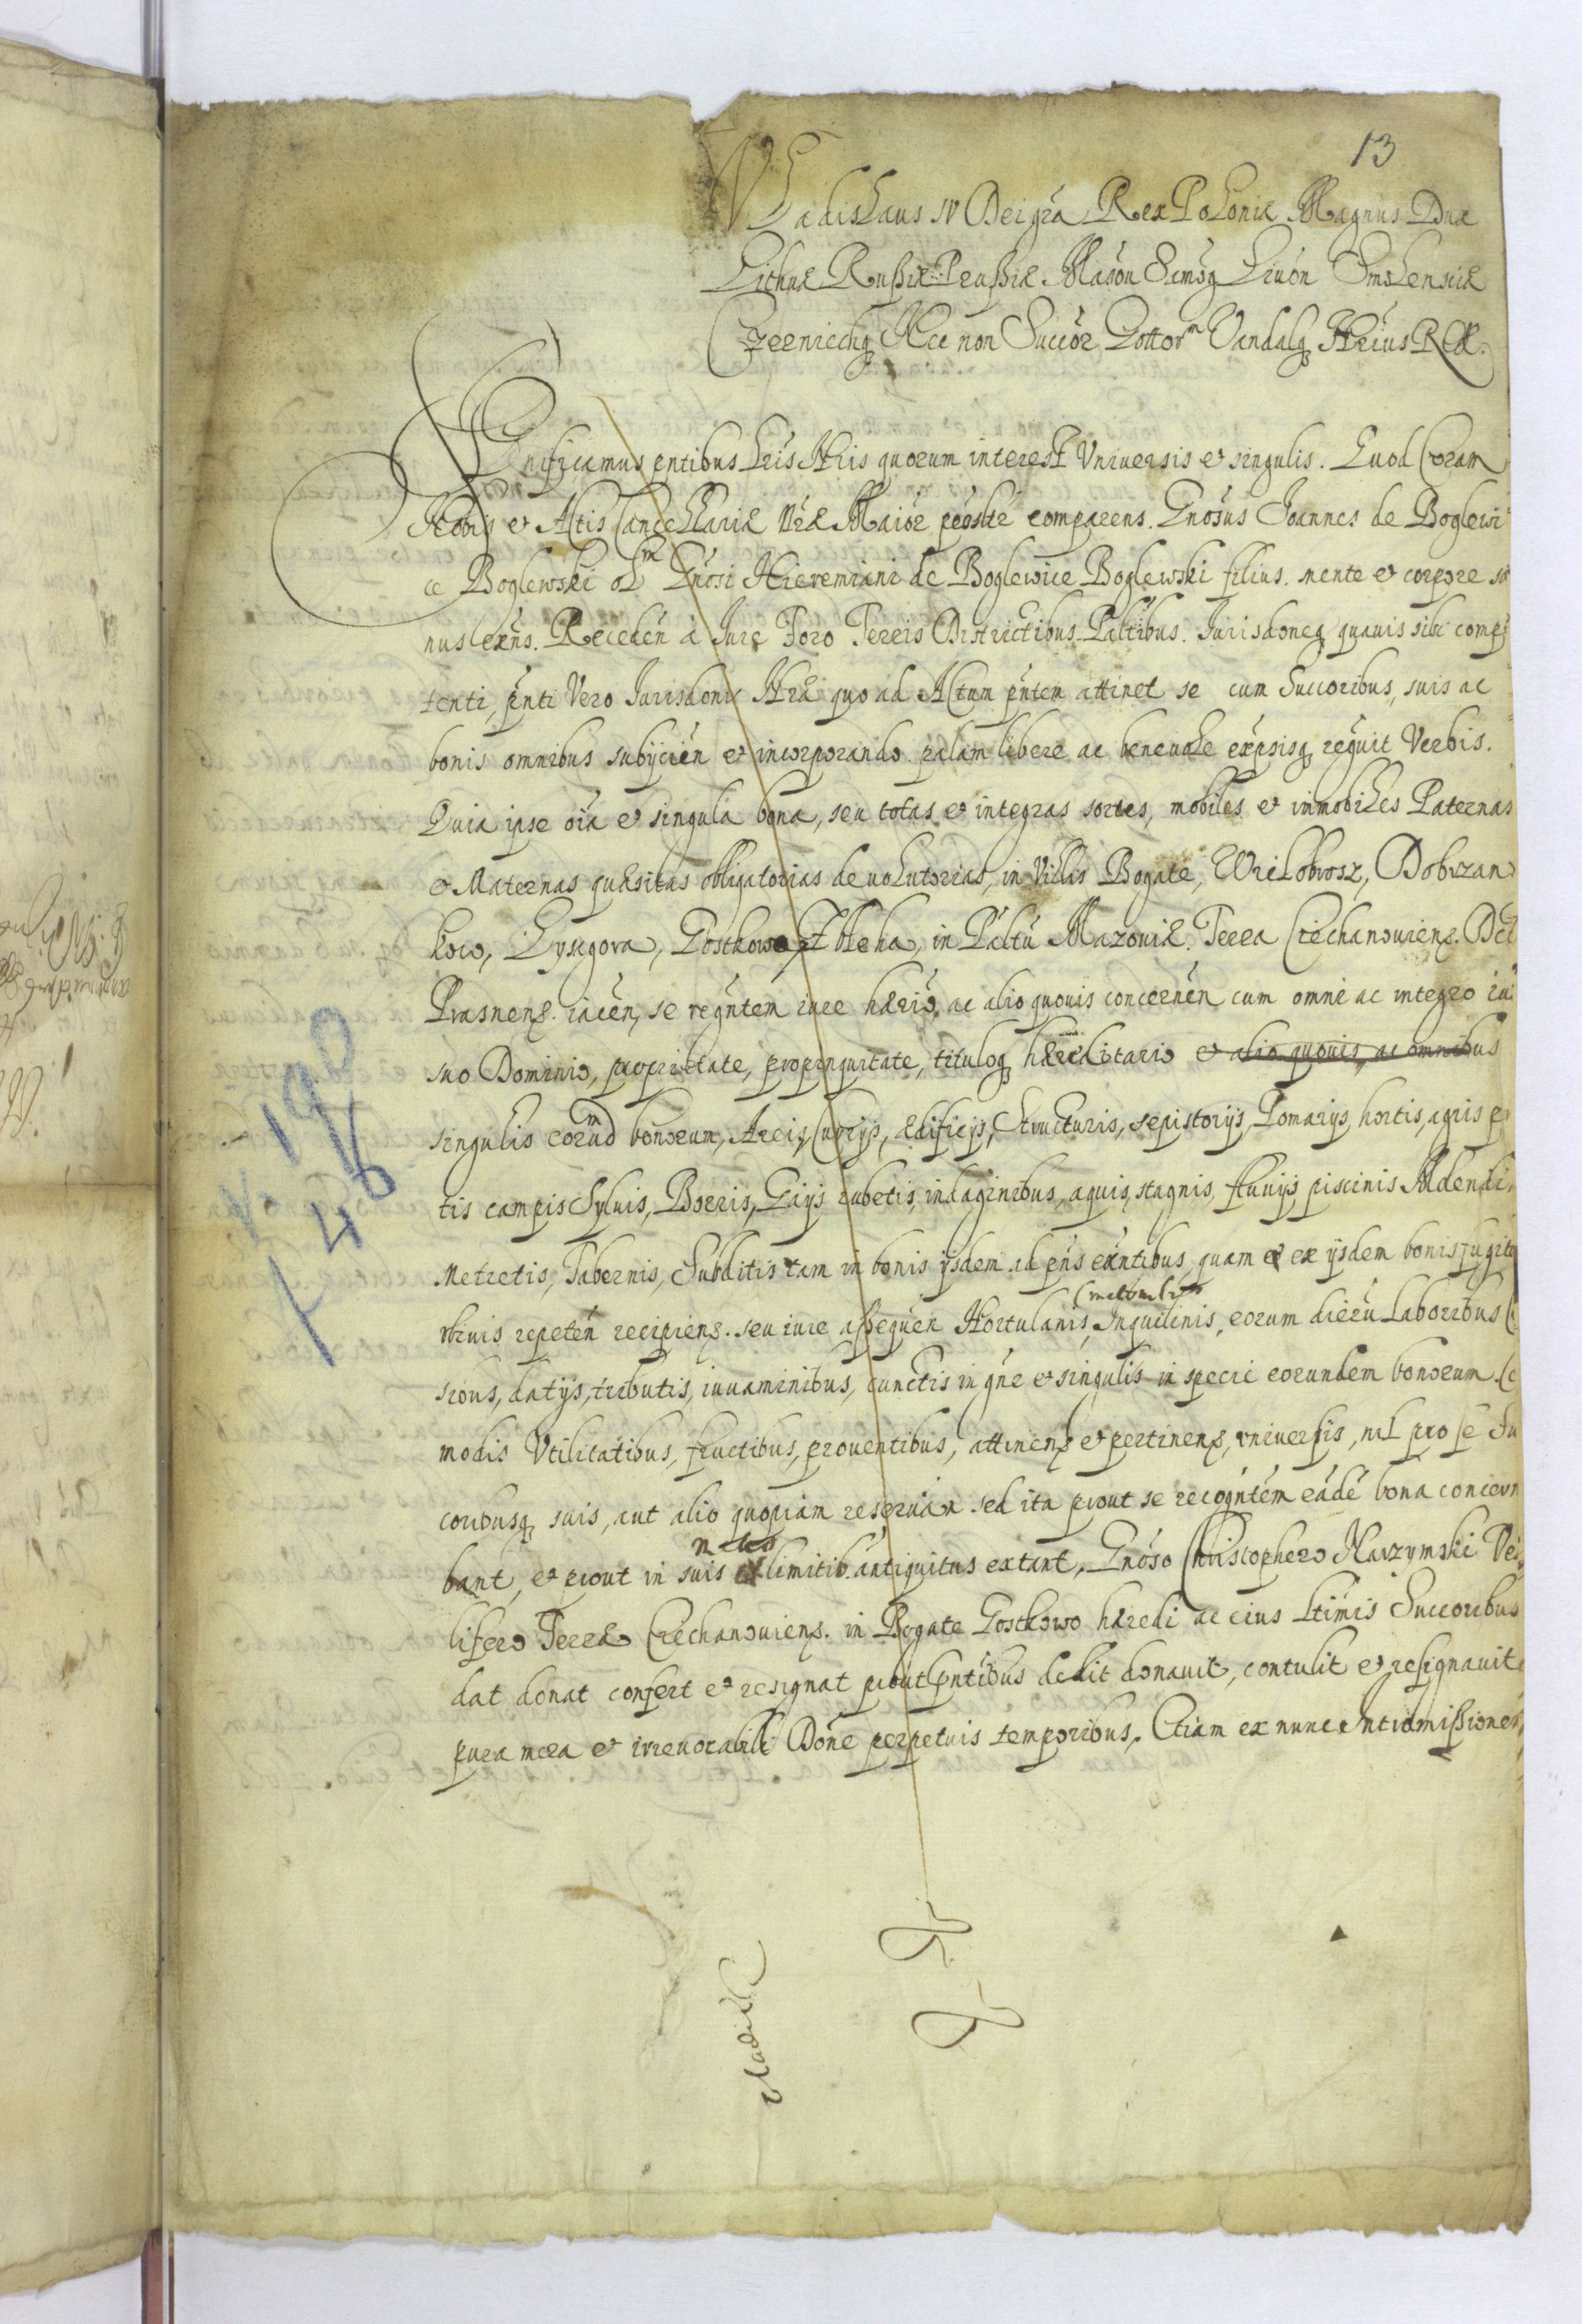 13
Vladislaus IV Dei gra Rex Poloniæ Magnus Dux
Lithuæ Russiæ Prussiæ Masou Samog Liuon Smolensciæ
Czerniechq Nec non Suecor Gottorm Vandalq Hæius Rex.
Significamus pntibus Lris Nris quorum interest Vniuersis et singulis. Quod Coram
Nobis et Actis Cancellariæ Nræ Maior psonlr comparens. Gnosus Joannes de Boglewi
ce Boglewski olm Gnosi Hieremiani de Boglewice Boglewski filius. mente et corpore sa
nus exns. Receden a Jure Foro Terris Districtibus Paltibus. Jurisdoneq quauis sibi compe
tenti, pnti Vero Jurisdoni Nræ quo ad Actum pntem attinet se cum Succoribus, suis ac
bonis omnibus subijcien et incorporando palam libere ac beneuole expsisq recguit Verbis.
Quia ipse oia et singula bona, seu totas et integras sortes, mobiles et immobiles Paternas
et Maternas quæsitas obligatorias deuolutorias, in Villis Bogate, Wielobrosz, Dobrzan
kow, Lysagora, Gostkowo, in Paltu Mazouiæ. Terra Ciechanouiens. Dct
Prasnens. iacen, se recgntem iure hærio, ac alio quouis concernen cum omni ac integro iu
suo Dominio, proprietate, propinquitate, tituloq hæreditario et alio quouis, ac omnibus
singulis eorundm bonorum, Areis, Curijs, ædificijs, Structuris, sepistorijs, Pomarijs, hortis, agris p
tis campis Syluis, Borris, Gaijs rubetis, indaginibus, aquis, stagnis, fluuijs, piscinis Molendi
Metretis, Tabernis, Subditis tam in bonis ijsdem ad pns exntibus, quam et ex ijsdem bonis fugiti
tiuis repeten recipiens. seu iure assequen Hortulanis, Inquilinis, eorum dieru Laboribus C
sibus, datijs, tributis, iuuaminibus, cunctis in gne et singulis in specie eorundem bonorum. Co
modis Vtilitatibus, fructibus, prouentibus, attinens et pertinens, vniuersis, nil pro se Su
coribusq suis, aut alio quopiam reseruan sed ita prout se recogntem eade bona concern
bant, et prout in suis limitib. antiquitus extant, Gnoso Christophero Narzymski Ve
lifero Terræ Ciechanouiens. in Bogate Gostkowo hæredi ac eius Ltimis Succoribus
dat donat confert et resignat prout pntibus dedit donauit, contulit et resignauit
pura mera et irreuocabili Done perpetuis temporibus. Etiam ex nunc Intromissionem
190
V. 46
Vladisl